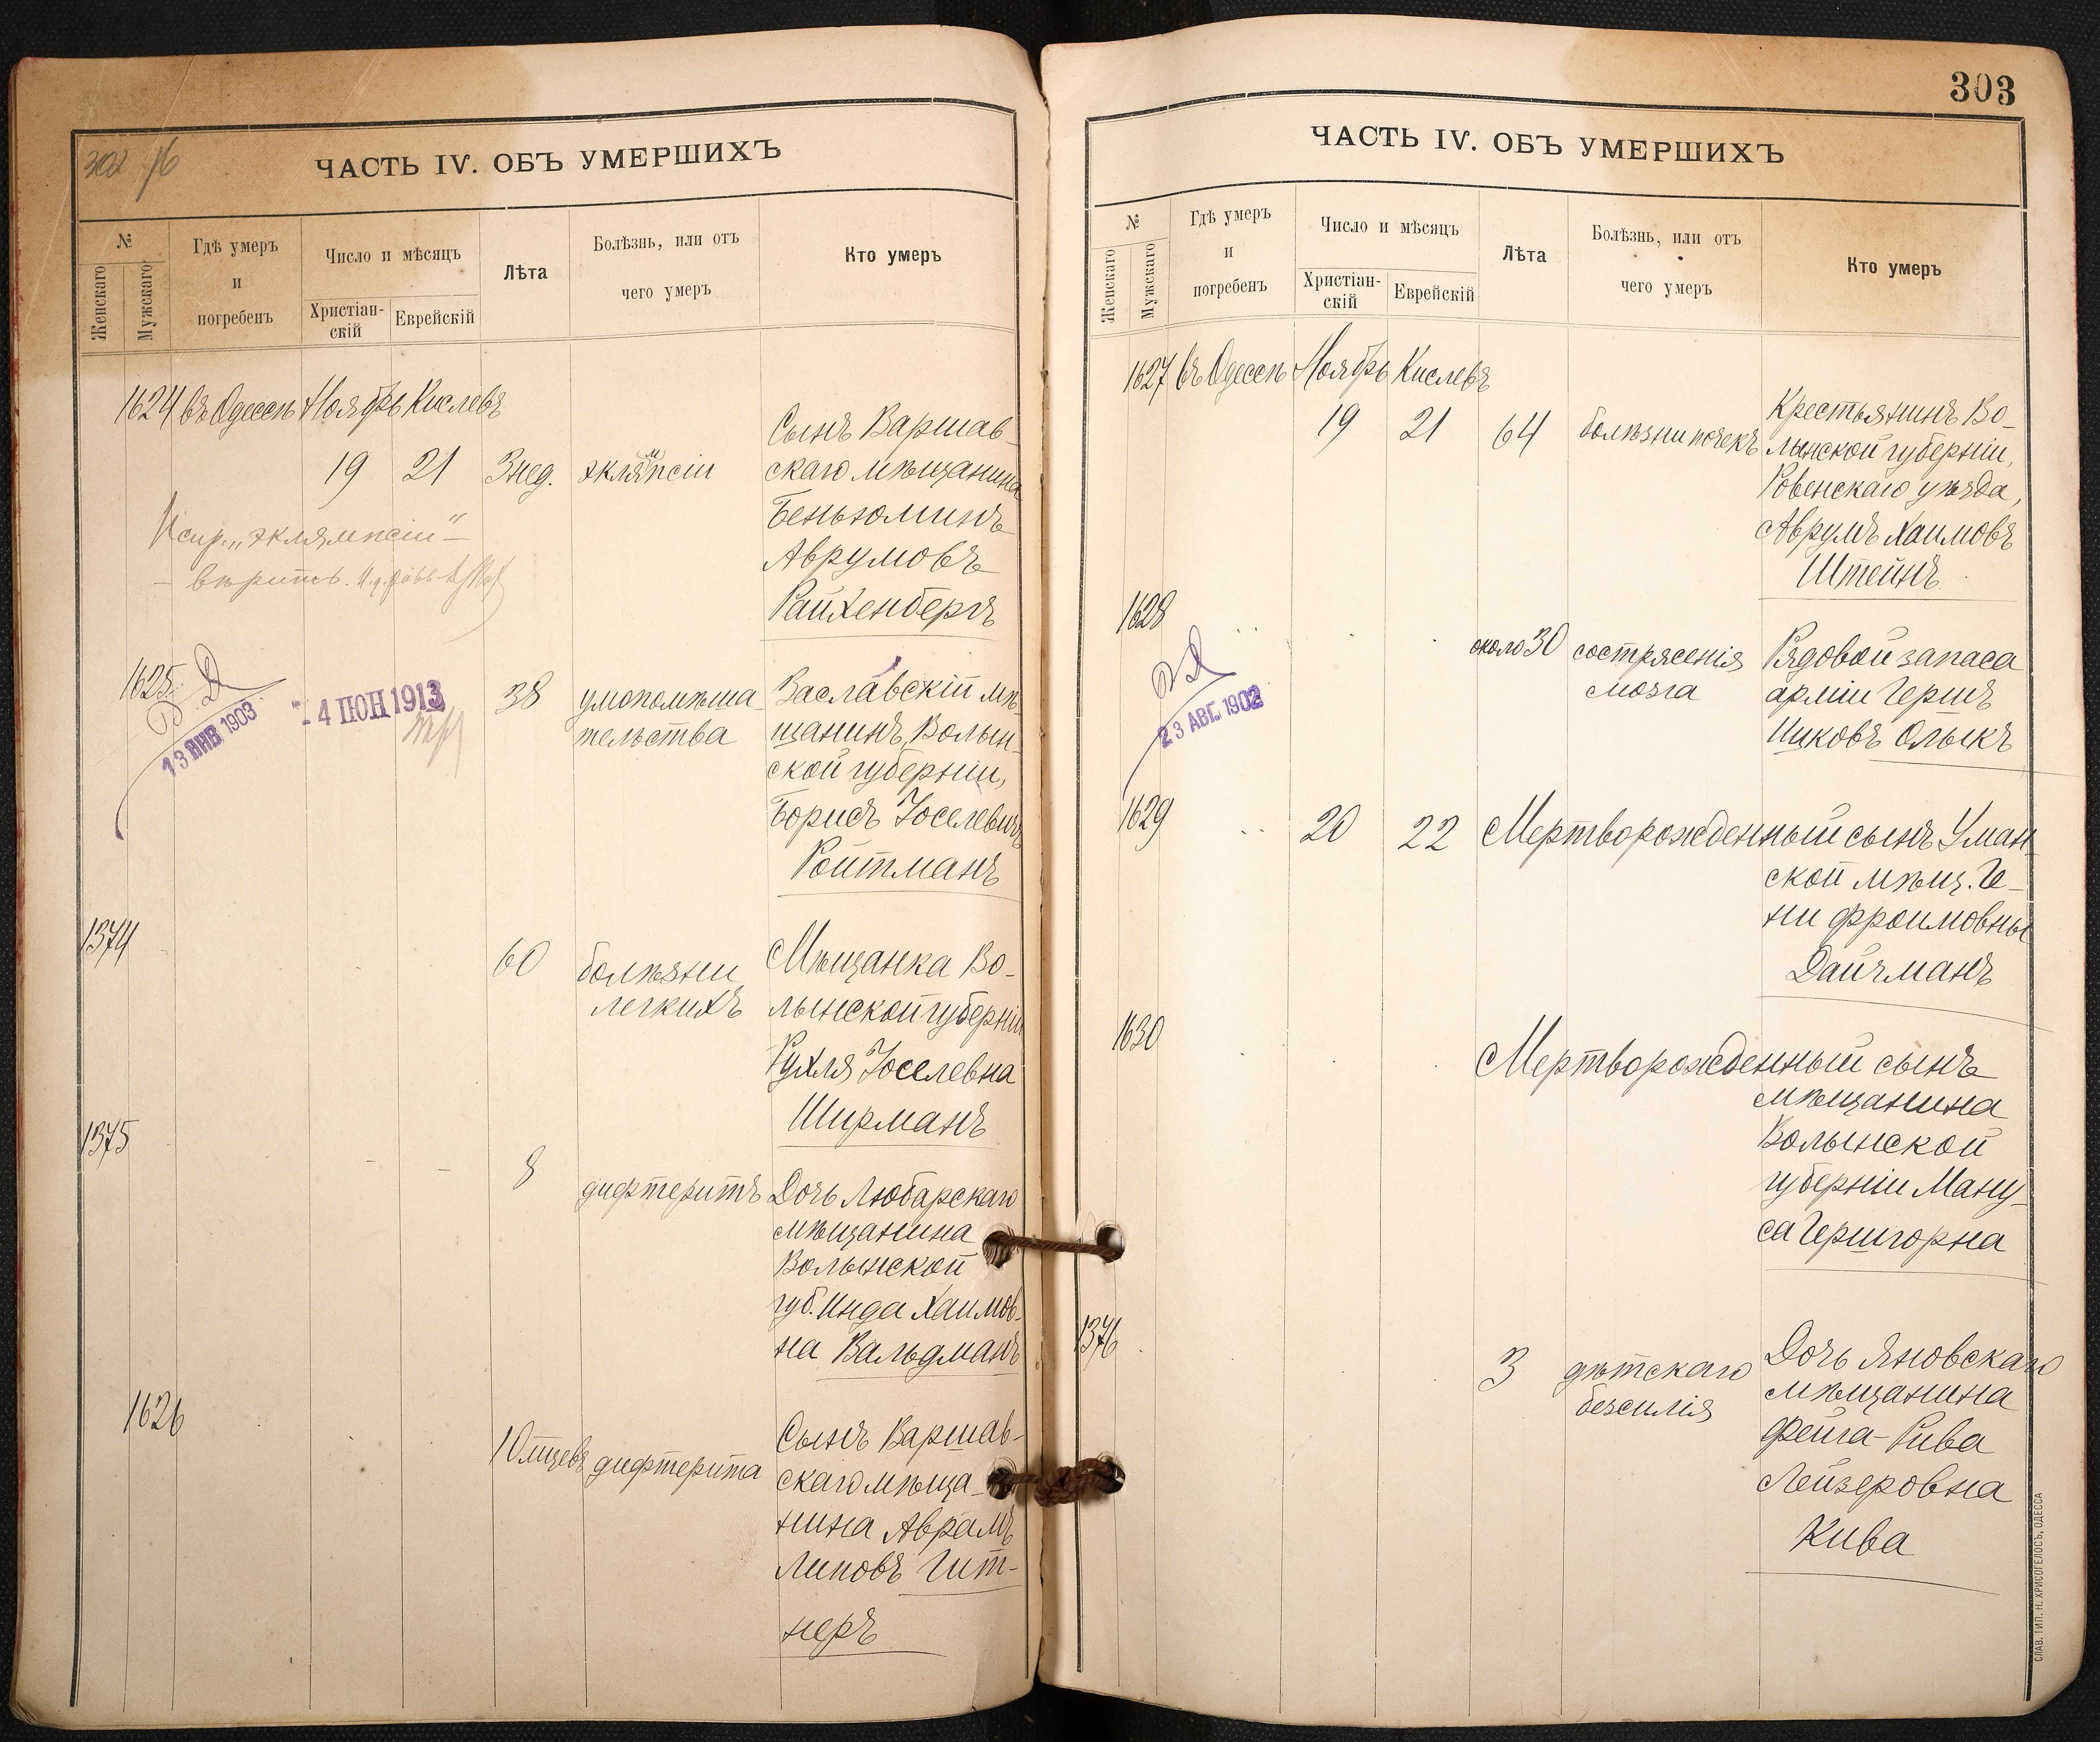 302
ЧАСТЬ IV. ОБЪ УМЕРШИХЪ
№
Женскаго
Мужскаго
Гдѣ умеръ
и
погребенъ
Число и мѣсяцъ
Христіан-
скій
Еврейскій
Лѣта
Болѣзнь, или отъ
чего умеръ
Кто умеръ
1624 въ Одессѣ Ноябрь Кислевъ
19 21 3 нед. эклямпсіи
Сынъ Варшав-
скаго мѣщанина
Беньюминъ
Аврумовъ
Райхенбергъ
Испр. „эклямпсіи" –
– вѣрить.
1625
13 ЯНВ 1903
- 4 ІЮН 1913
38 умопомѣша-
тельства
Заславскій мѣ-
щанинъ, Волын-
ской губерніи,
Борисъ Іоселевичъ
Ройтманъ
1374
60 болѣзни
легкихъ
Мѣщанка Во-
лынской губерніи
Рухля Іоселевна
Ширманъ
1375
8 дифтеритъ
Дочь Любарскаго
мѣщанина
Волынской
губ. Инда Хаимов-
на Вальдманъ
1626
10 мцевъ дифтерита
Сынъ Варшав-
скаго мѣща-
нина Аврамъ
Липовъ Гит-
неръ
303
ЧАСТЬ IV. ОБЪ УМЕРШИХЪ
№
Женскаго
Мужскаго
Гдѣ умеръ
и
погребенъ
Число и мѣсяцъ
Христіан-
скій
Еврейскій
Лѣта
Болѣзнь, или отъ
чего умеръ
Кто умеръ
1627 въ Одессѣ Ноябрь Кислевъ
19 21 64 болѣзни почекъ
Крестьянинъ Во-
лынской губерніи,
Ровенскаго уѣзда,
Аврумъ Хаимовъ
Штейнъ
1628
23 АВГ. 1902
около 30 сострясенія
мозга
Рядовой запаса
арміи Гершъ
Ицковъ Олыкъ
1629
20 22 Мертворожденный сынъ Уман-
ской мѣщ. Ге-
ни Фроимовны
Дайчманъ
1630
Мертворожденный сынъ
мѣщанина
Волынской
губерніи Ману-
са Гершгорна
1376
3 дѣтскаго
безсилія
Дочь Яновскаго
мѣщанина
Фейга-Рива
Лейзеровна
Кива
СЛАВ. ТИП. Н. ХРИСОГЕЛОСЪ, ОДЕССА